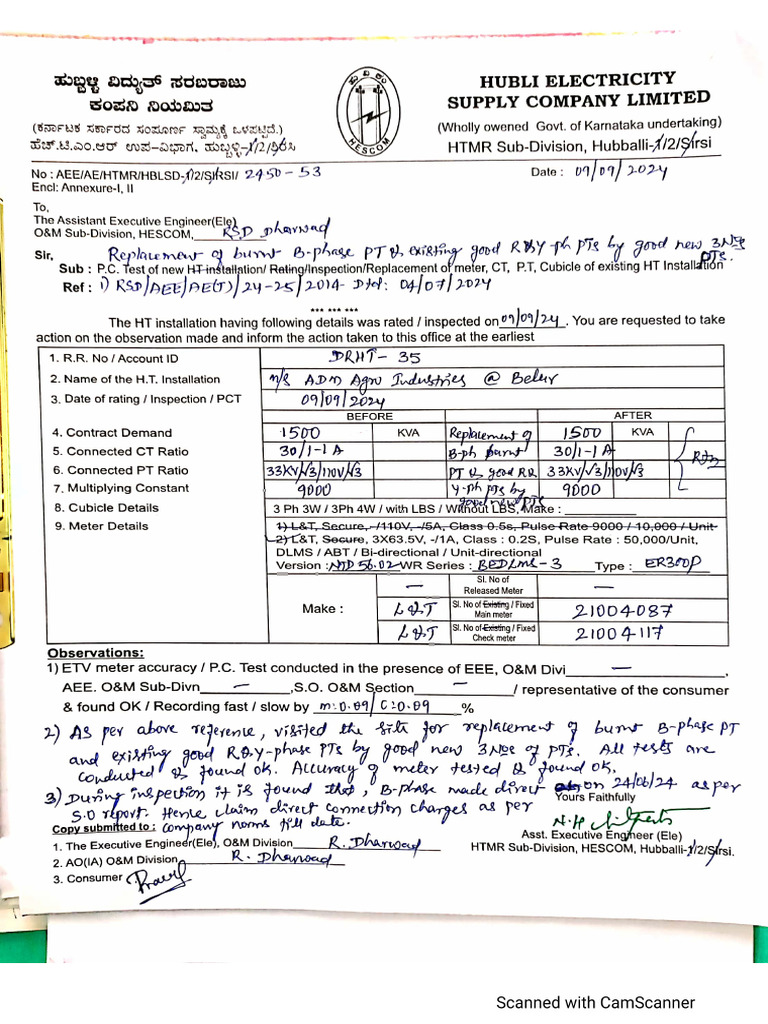 ಹುಬ್ಬಳ್ಳಿ ವಿದ್ಯುತ್ ಸರಬರಾಜು
ಕಂಪನಿ ನಿಯಮಿತ
(ಕರ್ನಾಟಕ ಸರ್ಕಾರದ ಸಂಪೂರ್ಣ ಸ್ವಾಮ್ಯಕ್ಕೆ ಒಳಪಟ್ಟಿದೆ.)
ಹೆಚ್.ಟಿ.ಎಂ.ಆರ್ ಉಪ-ವಿಭಾಗ, ಹುಬ್ಬಳ್ಳಿ-1/2/ಶಿರಸಿ
ಹು ವಿ ಸ ಕಂ
HESCOM
HUBLI ELECTRICITY
SUPPLY COMPANY LIMITED
(Wholly owened Govt. of Karnataka undertaking)
HTMR Sub-Division, Hubballi-1/2/Sirsi
No : AEE/AE/HTMR/HBLSD-1/2/SIRSI/ 2450-53 Date : 09/09/2024
Encl: Annexure-I, II
To,
The Assistant Executive Engineer(Ele)
O&M Sub-Division, HESCOM, RSD Dharwad
Sir, Replacement of burnt B-phase PT & existing good R&Y-ph PTs by good new 3Nos PTs.
Sub : P.C. Test of new HT installation/ Rating/Inspection/Replacement of meter, CT, P.T, Cubicle of existing HT Installation
Ref : 1) RSD/AEE/AE(T)/24-25/2014- Dtd: 04/07/2024
*** *** ***
The HT installation having following details was rated / inspected on 09/09/24. You are requested to take
action on the observation made and inform the action taken to this office at the earliest
1. R.R. No / Account ID DRHT-35
2. Name of the H.T. Installation M/s ADM Agro Industries @ Belur
3. Date of rating / Inspection / PCT 09/09/2024
BEFORE AFTER
4. Contract Demand 1500 KVA Replacement of 1500 KVA
5. Connected CT Ratio 30/1-1A B-ph burnt 30/1-1A
6. Connected PT Ratio 33KV/√3/110V/√3 PT & good R& 33KV/√3/110V/√3
7. Multiplying Constant 9000 Y-ph PTs by 9000
good new PTs
8. Cubicle Details 3 Ph 3W / 3Ph 4W / with LBS / Without LBS, Make :
9. Meter Details 1) L&T, Secure, -/110V, -/5A, Class 0.5s, Pulse Rate 9000 / 10,000 / Unit
2) L&T, Secure, 3X63.5V, -/1A, Class : 0.2S, Pulse Rate : 50,000/Unit,
DLMS / ABT / Bi-directional / Unit-directional
Version : NTD 56.02 WR Series : BEDLMS-3 Type : ER300P
Make : — Sl. No of Released Meter —
L&T Sl. No of Existing / Fixed Main meter 21004087
L&T Sl. No of Existing / Fixed Check meter 21004117
Observations:
1) ETV meter accuracy / P.C. Test conducted in the presence of EEE, O&M Divi —,
AEE. O&M Sub-Divn — ,S.O. O&M Section — / representative of the consumer
& found OK / Recording fast / slow by m:0.09/C:0.09 %
2) As per above reference, visited the site for replacement of burnt B-phase PT
and existing good R&Y-phase PTs by good new 3Nos of PTs. All tests are
conducted & found OK. Accuracy of meter tested & found OK.
3) During inspection it is found that, B-phase made direct on 24/06/24 as per
S.O report. Hence claim direct connection charges as per
company norms till date.
Yours Faithfully
Asst. Executive Engineer (Ele)
HTMR Sub-Division, HESCOM, Hubballi-1/2/Sirsi.
Copy submitted to :
1. The Executive Engineer(Ele), O&M Division R. Dharwad
2. AO(IA) O&M Division R. Dharwad
3. Consumer
Scanned with CamScanner